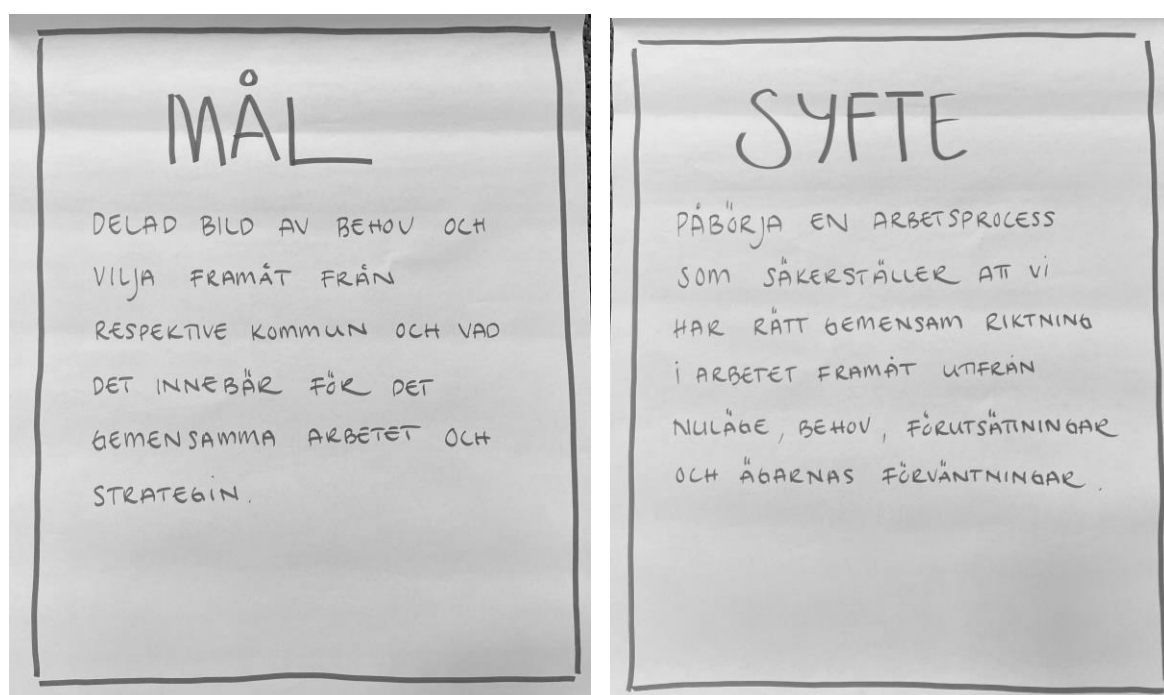 MÅL
DELAD BILD AV BEHOV OCH
VILJA FRAMÅT FRÅN
RESPEKTIVE KOMMUN OCH VAD
DET INNEBÄR FÖR DET
GEMENSAMMA ARBETET OCH
STRATEGIN.
SYFTE
PÅBÖRJA EN ARBETSPROCESS
SOM SÄKERSTÄLLER ATT VI
HAR RÄTT GEMENSAM RIKTNING
I ARBETET FRAMÅT UTIFRÅN
NULÄGE, BEHOV, FÖRUTSÄTTNINGAR
OCH ÄGARNAS FÖRVÄNTNINGAR.